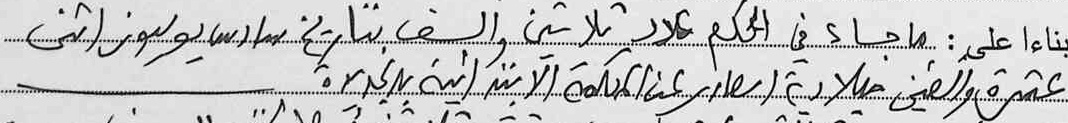 بناءا على: ما جاء في الحكم عدد ثلاثين والسف بتاريخ سادس يوليوز اثنى
عشرة والفين ميلادية الصادر عن المحكمة الابتدائية بالجديدة